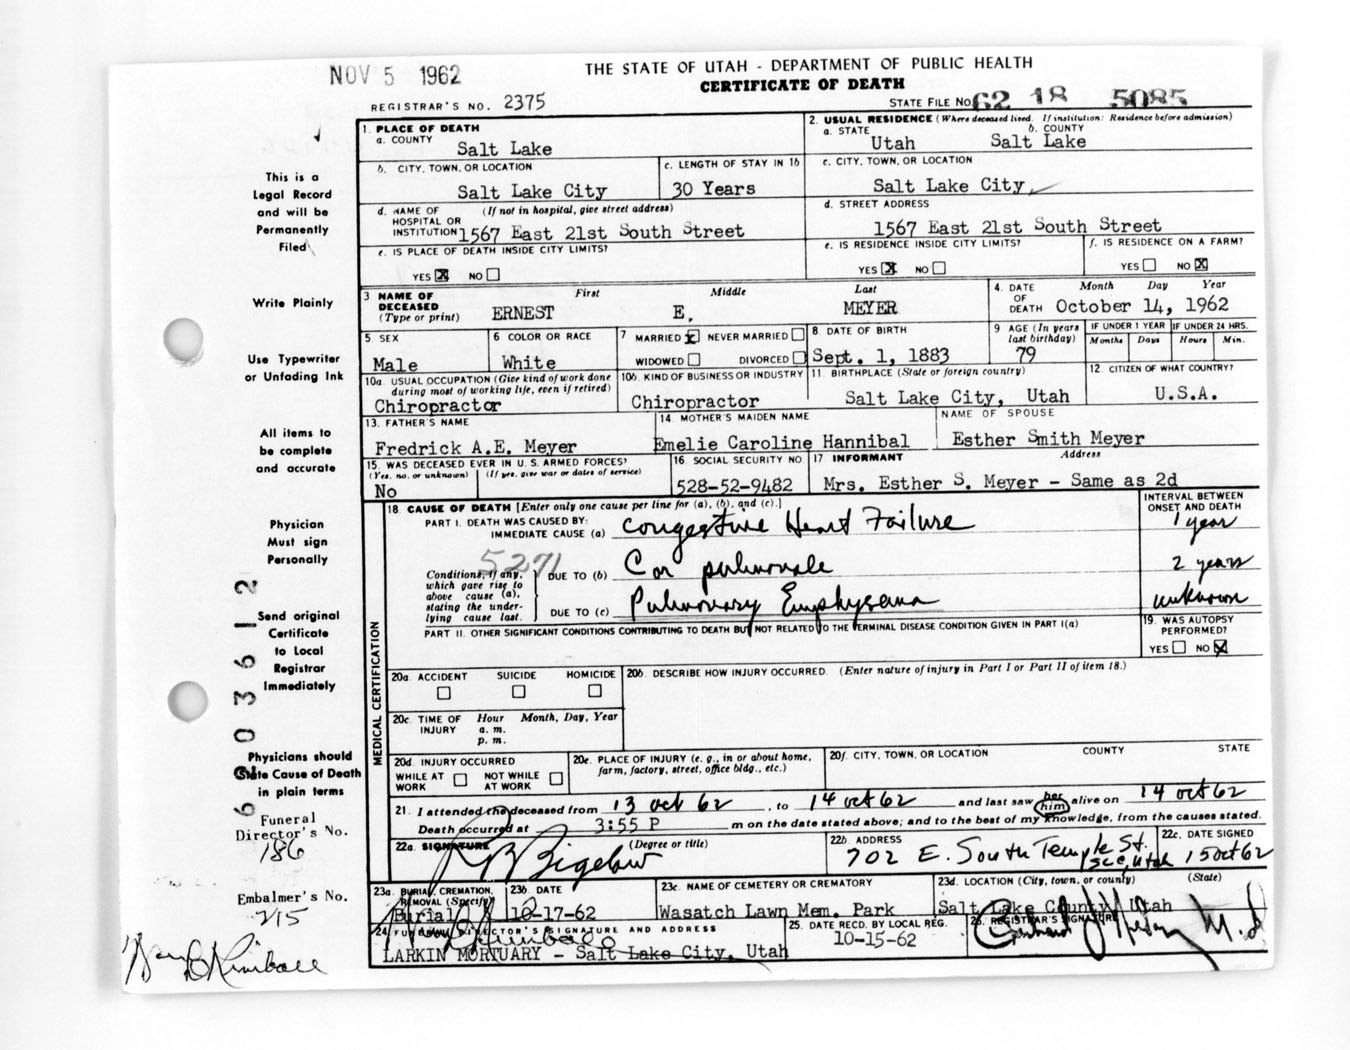 NOV 5 1962
THE STATE OF UTAH - DEPARTMENT OF PUBLIC HEALTH
CERTIFICATE OF DEATH
REGISTRAR'S NO. 2375
STATE FILE No. 62 18 5085
This is a
Legal Record
and will be
Permanently
Filed
Write Plainly
Use Typewriter
or Unfading Ink
All items to
be complete
and accurate
Physician
Must sign
Personally
Send original
Certificate
to Local
Registrar
Immediately
Physicians should
State Cause of Death
in plain terms
Funeral
Director's No.
186
Embalmer's No.
215
1. PLACE OF DEATH
a. COUNTY Salt Lake
2. USUAL RESIDENCE (Where deceased lived. If institution: Residence before admission)
a. STATE Utah b. COUNTY Salt Lake
b. CITY, TOWN, OR LOCATION Salt Lake City
c. LENGTH OF STAY IN 1b 30 Years
c. CITY, TOWN, OR LOCATION Salt Lake City
d. NAME OF HOSPITAL OR INSTITUTION (If not in hospital, give street address) 1567 East 21st South Street
d. STREET ADDRESS 1567 East 21st South Street
e. IS PLACE OF DEATH INSIDE CITY LIMITS?
YES X NO
e. IS RESIDENCE INSIDE CITY LIMITS?
YES X NO
f. IS RESIDENCE ON A FARM?
YES NO X
3 NAME OF DECEASED (Type or print) First Middle Last
ERNEST E. MEYER
4. DATE OF DEATH Month Day Year
October 14, 1962
5 SEX Male
6 COLOR OR RACE White
7 MARRIED X NEVER MARRIED
WIDOWED DIVORCED
8 DATE OF BIRTH Sept. 1, 1883
9 AGE (In years last birthday) 79
IF UNDER 1 YEAR Months Days
IF UNDER 24 HRS. Hours Min.
10a. USUAL OCCUPATION (Give kind of work done during most of working life, even if retired)
Chiropractor
10b. KIND OF BUSINESS OR INDUSTRY
Chiropractor
11. BIRTHPLACE (State or foreign country)
Salt Lake City, Utah
12. CITIZEN OF WHAT COUNTRY?
U.S.A.
13. FATHER'S NAME
Fredrick A.E. Meyer
14 MOTHER'S MAIDEN NAME
Emelie Caroline Hannibal
NAME OF SPOUSE
Esther Smith Meyer
15. WAS DECEASED EVER IN U.S. ARMED FORCES?
(Yes, no, or unknown) (If yes, give war or dates of service)
No
16. SOCIAL SECURITY NO.
528-52-9482
17 INFORMANT Address
Mrs. Esther S. Meyer - Same as 2d
MEDICAL CERTIFICATION
18. CAUSE OF DEATH [Enter only one cause per line for (a), (b), and (c).]
INTERVAL BETWEEN ONSET AND DEATH
PART I. DEATH WAS CAUSED BY:
IMMEDIATE CAUSE (a) Congestive Heart Failure 1 year
5271
Conditions, if any, which gave rise to above cause (a), stating the underlying cause last.
DUE TO (b) Cor pulmonale 2 years
DUE TO (c) Pulmonary Emphysema unknown
PART II. OTHER SIGNIFICANT CONDITIONS CONTRIBUTING TO DEATH BUT NOT RELATED TO THE TERMINAL DISEASE CONDITION GIVEN IN PART I(a)
19. WAS AUTOPSY PERFORMED?
YES NO X
20a. ACCIDENT SUICIDE HOMICIDE
20b. DESCRIBE HOW INJURY OCCURRED. (Enter nature of injury in Part I or Part II of item 18.)
20c. TIME OF INJURY Hour Month, Day, Year
a. m.
p. m.
20d. INJURY OCCURRED
WHILE AT WORK NOT WHILE AT WORK
20e. PLACE OF INJURY (e. g., in or about home, farm, factory, street, office bldg., etc.)
20f. CITY, TOWN, OR LOCATION COUNTY STATE
21. I attended the deceased from 13 Oct 62, to 14 Oct 62 and last saw her him alive on 14 Oct 62
Death occurred at 3:55 P m on the date stated above; and to the best of my knowledge, from the causes stated.
22a. SIGNATURE (Degree or title)
Bigelow
22b ADDRESS
702 E. South Temple St. SLC, Utah
22c. DATE SIGNED
15 Oct 62
23a. BURIAL, CREMATION, REMOVAL (Specify)
Burial
23b. DATE
10-17-62
23c. NAME OF CEMETERY OR CREMATORY
Wasatch Lawn Mem. Park
23d. LOCATION (City, town, or county) (State)
Salt Lake County Utah
24. FUNERAL DIRECTOR'S SIGNATURE AND ADDRESS
Kimball
LARKIN MORTUARY - Salt Lake City, Utah
25. DATE RECD. BY LOCAL REG.
10-15-62
26. REGISTRAR'S SIGNATURE
M.D.
Kimball